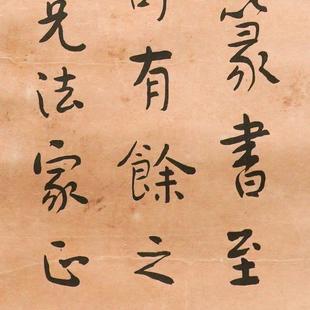 篆書至
有餘之
兄法家正